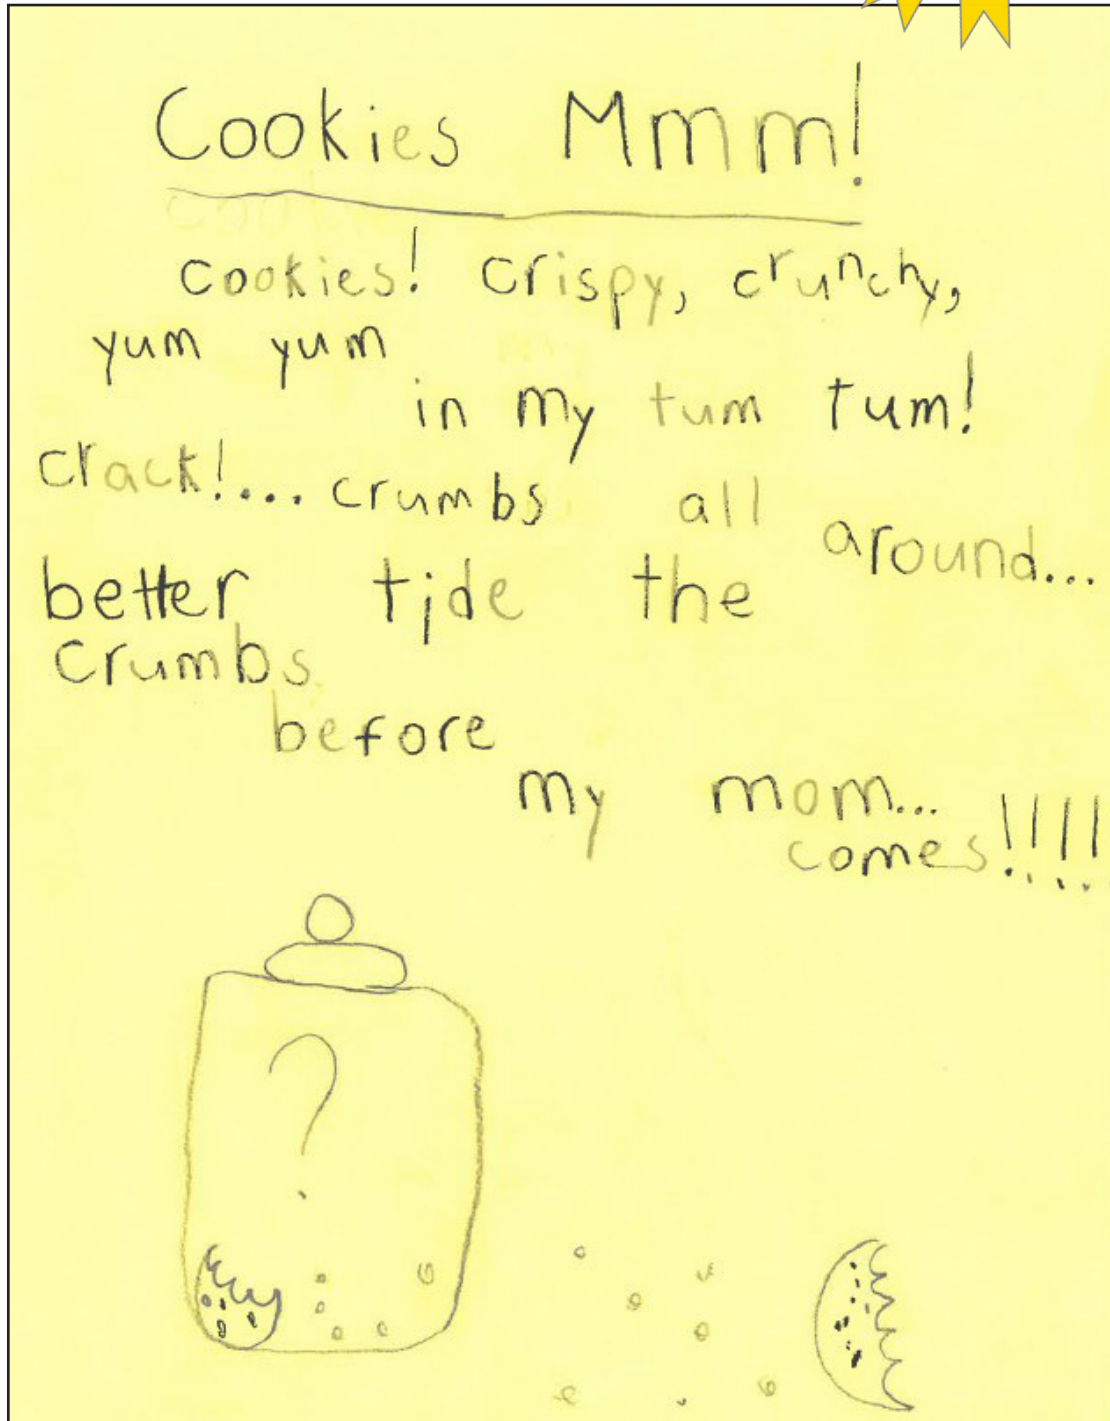 Cookies Mmm!
cookies! crispy, crunchy,
yum yum
in my tum tum!
crack!... crumbs all around...
better tide the
crumbs
before
my mom...
comes!!!!
?